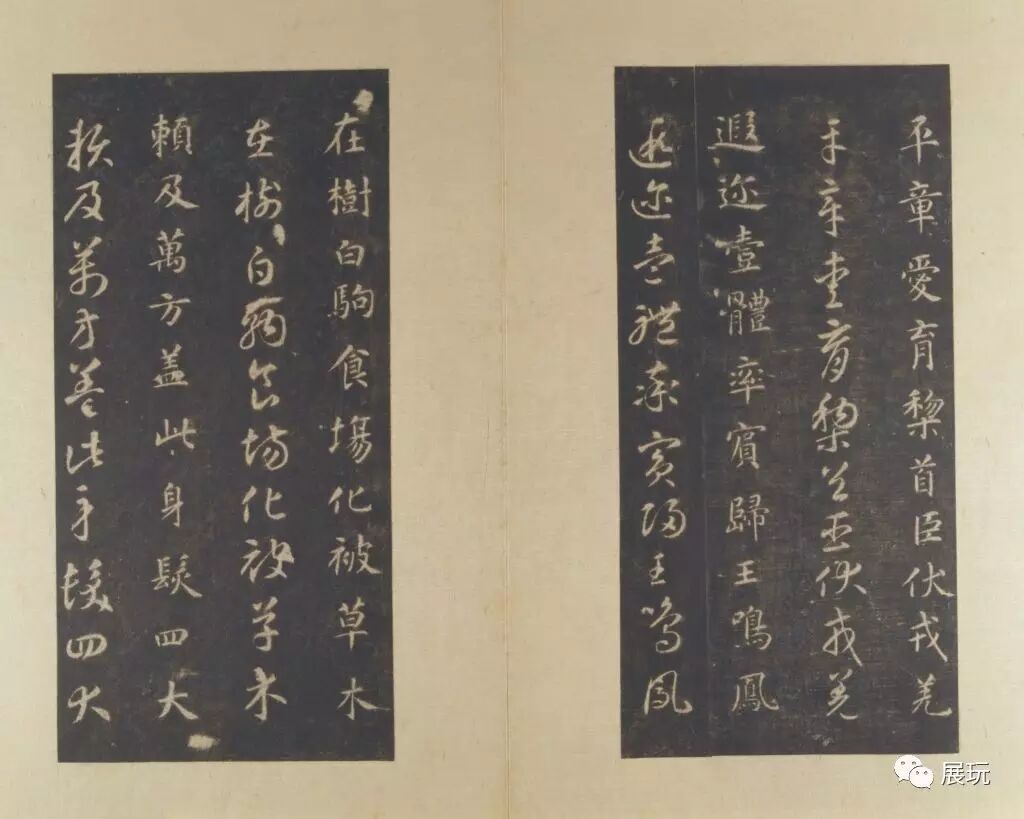 平章愛育黎首臣伏戎羌
平章愛育黎首臣伏戎羌
遐迩壹體率賓歸王鳴鳳
遐迩壹體率賓歸王鳴鳳
在樹白駒食場化被草木
在樹白駒食場化被草木
賴及萬方盖此身髮四大
賴及萬方盖此身髮四大
展玩